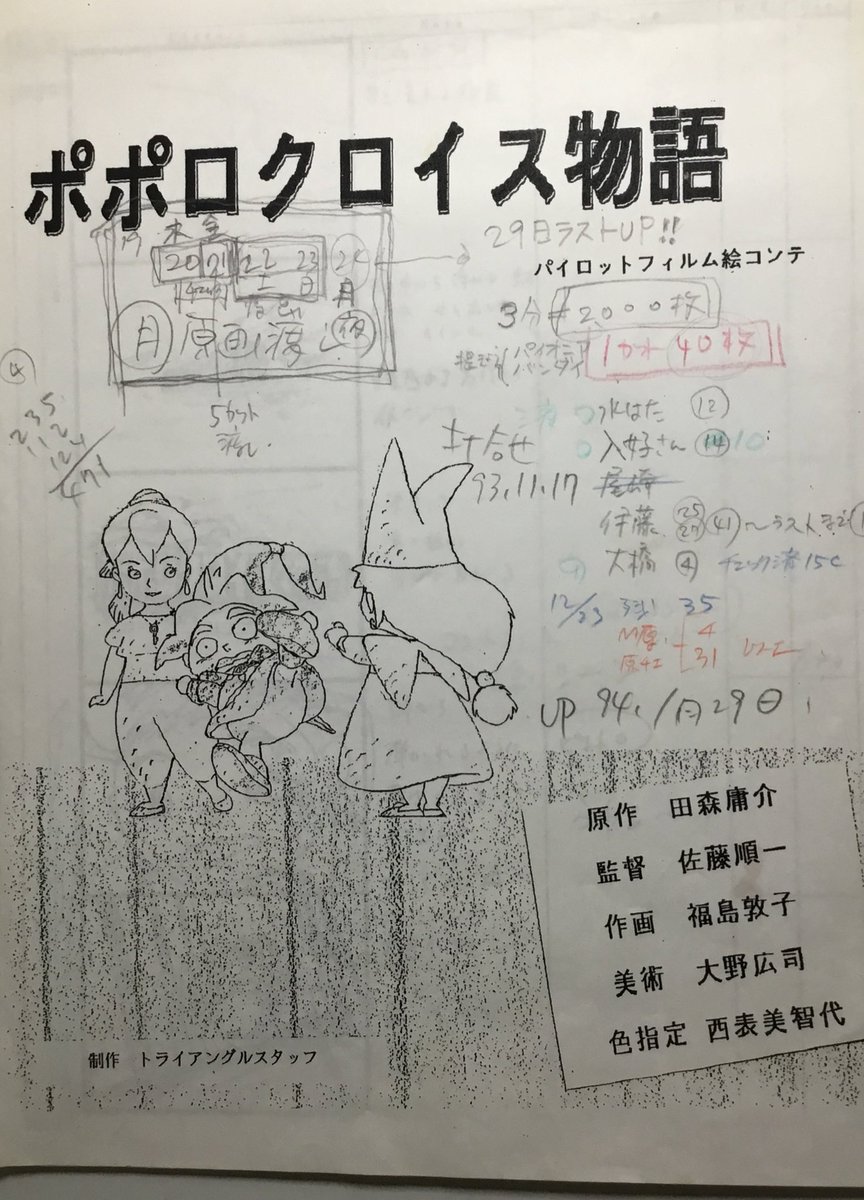 ポポロクロイス物語
木 金
20 21 22 23 24
土 日 月
月 原画渡し
29日ラストUP!!
パイロットフィルム絵コンテ
3分 2000枚
パイオニア
バンダイ
1カット 40枚
5カット
235
112
124
471
4
水はた 12
打合せ
入好さん 14 10
93.11.17
尾崎
伊藤 25 27 41 〜ラストまで
大橋 4 チェック済 15C
12/23 残り 35
4
31
UP 94.1月29日
原作 田森庸介
監督 佐藤順一
作画 福島敦子
美術 大野広司
色指定 西表美智代
制作 トライアングルスタッフ